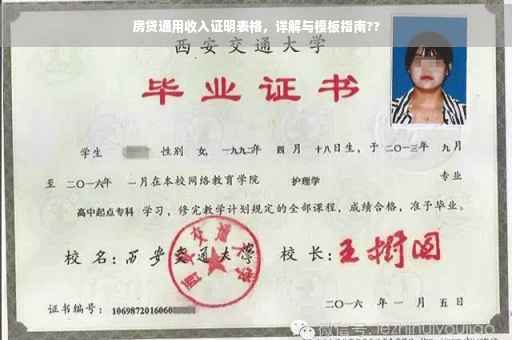 房贷通用收入证明表格，详解与模板指南??
西安交通大学
毕业证书
学生 性别 女，一九九二年 四 月 十八日生，于 二〇一三年 九月
至 二〇一六年 一月在本校网络教育学院 护理学 专业
高中起点专科 学习，修完教学计划规定的全部课程，成绩合格，准予毕业。
校 名：西安交通大学 校 长：王树国
西安交通大学
证书编号：1069872016060
二〇一六 年 一 月 五 日
微信号: lezhihuiyoujiao